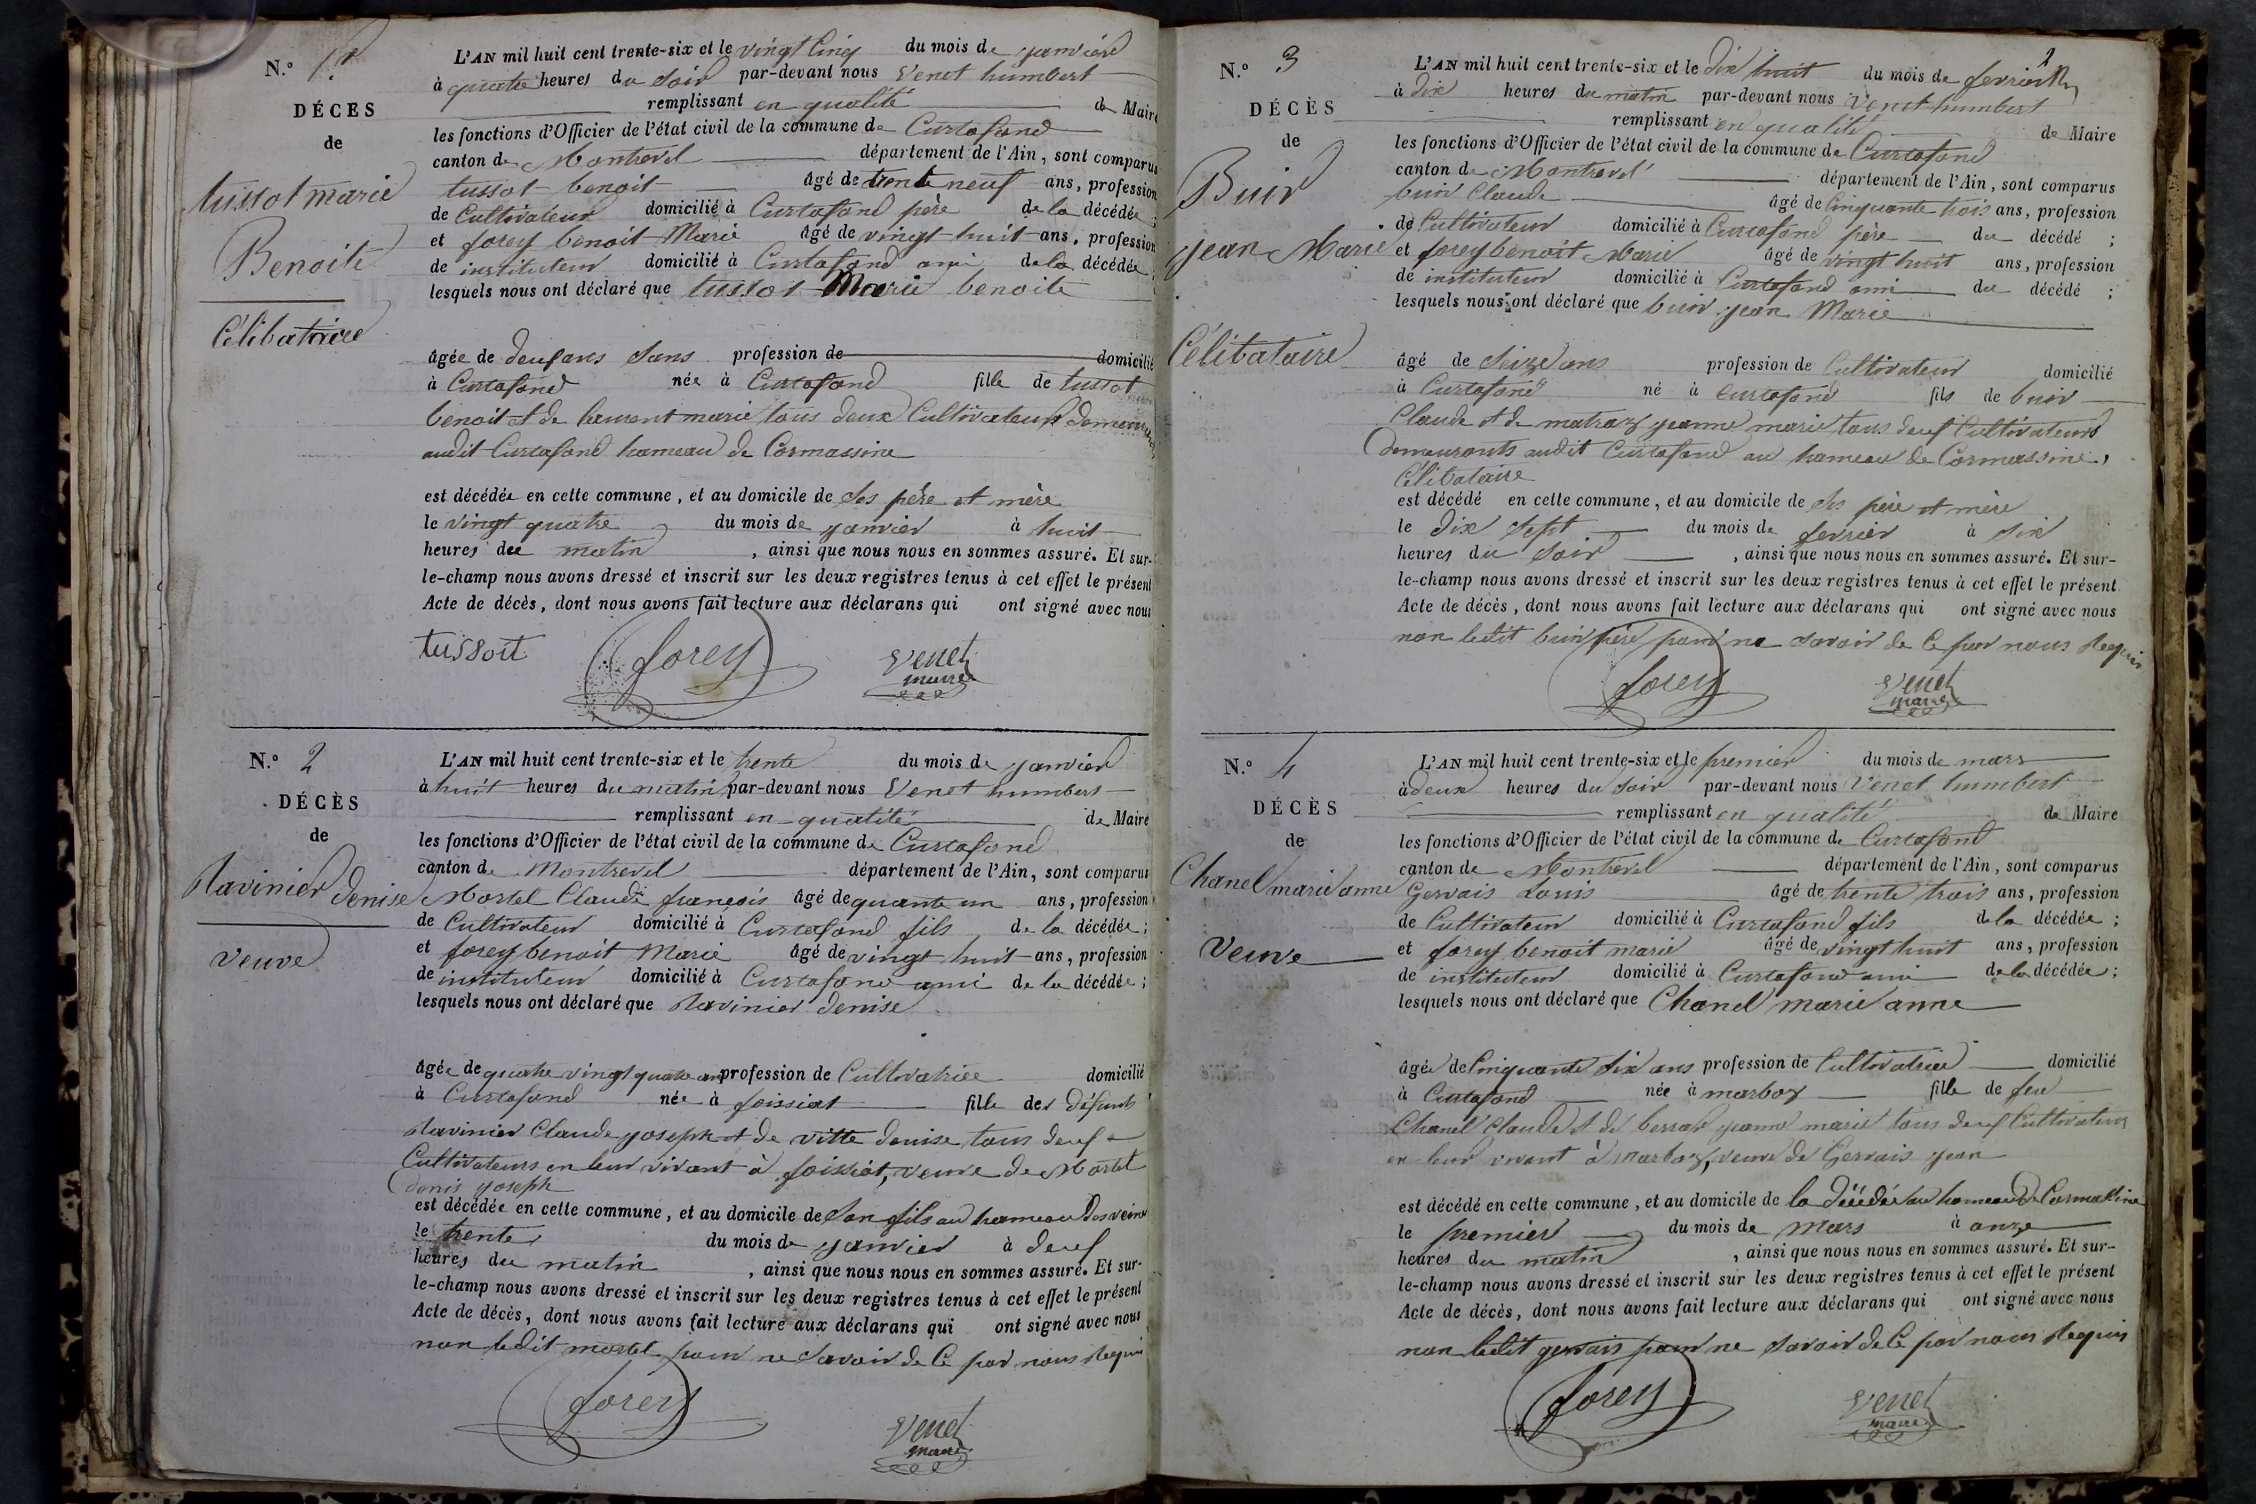 N.º 1er
DÉCES
de
tussot marie
Benoite
Célibataire
L'AN mil huit cent trente-six et le vingt cinq du mois de janvier
à quatre heures du soir par-devant nous Venet humbert
remplissant en qualité de Maire
les fonctions d'Officier de l'état civil de la commune de Curtafond
canton de Montrevel département de l'Ain, sont comparus
tussot benoit âgé de trente neuf ans, profession
de Cultivateur domicilié à Curtafond père de la décédée ;
et forey benoit Marie âgé de vingt huit ans, profession
de instituteur domicilié à Curtafond ami de la décédée ;
lesquels nous ont déclaré que tussot Marie benoite
âgée de deux ans sans profession de domicilié
à Curtafond née à Curtafond fille de tussot
benoit et de marie tous deux Cultivateurs demeurants
audit Curtafond hameau de Cormassine
est décédée en cette commune, et au domicile de ses père et mère
le vingt quatre du mois de janvier à huit
heures du matin, ainsi que nous nous en sommes assuré. Et sur-
le-champ nous avons dressé et inscrit sur les deux registres tenus à cet effet le présent
Acte de décès, dont nous avons fait lecture aux déclarans qui ont signé avec nous
tussoit forey Venet
maire
N.º 2
DÉCÈS
de
Ravinier denise
veuve
L'AN mil huit cent trente-six et le trente du mois de janvier
à huit heures du matin par-devant nous Venet humbert
remplissant en qualité de Maire
les fonctions d'Officier de l'état civil de la commune de Curtafond
canton de Montrevel département de l'Ain, sont comparus
Mortel Claude françois âgé de quarante un ans, profession
de Cultivateur domicilié à Curtafond fils de la décédée ;
et forey benoit Marie âgé de vingt huit ans, profession
de instituteur domicilié à Curtafond ami de la décédée ;
lesquels nous ont déclaré que Ravinier denise
âgée de quatre vingt quatre ans profession de Cultivatrice domicilié
à Curtafond née à foissiat fille des défunts
Ravinier Claude joseph et de vitte denise tous deux
Cultivateurs en leur vivant à foissiat, veuve de Mortel
denis joseph
est décédée en cette commune, et au domicile de son fils au hameau
le trente du mois de janvier à deux
heures du matin, ainsi que nous nous en sommes assuré. Et sur-
le-champ nous avons dressé et inscrit sur les deux registres tenus à cet effet le présent
Acte de décès, dont nous avons fait lecture aux déclarans qui ont signé avec nous
non ledit mortel pour ne savoir de ce par nous Requis
forey Venet
maire
2
N.º 3
DÉCÈS
de
Buir
jean Marie
Célibataire
L'AN mil huit cent trente-six et le dix huit du mois de fevrier
à dix heures du matin par-devant nous Venet humbert
remplissant en qualité de Maire
les fonctions d'Officier de l'état civil de la commune de Curtafond
canton de Montrevel département de l'Ain, sont comparus
buir Claude âgé de Cinquante trois ans, profession
de Cultivateur domicilié à Curtafond père du décédé ;
et forey benoit Marie âgé de vingt huit ans, profession
de instituteur domicilié à Curtafond ami du décédé ;
lesquels nous ont déclaré que buir jean Marie
âgé de seize ans profession de Cultivateur domicilié
à Curtafond né à Curtafond fils de buir
Claude et de matray jeanne marie tous deux Cultivateurs
demeurants audit Curtafond au hameau de Cormassine,
Célibataire
est décédé en cette commune, et au domicile de ses père et mère
le dix sept du mois de fevrier à six
heures du soir, ainsi que nous nous en sommes assuré. Et sur-
le-champ nous avons dressé et inscrit sur les deux registres tenus à cet effet le présent
Acte de décès, dont nous avons fait lecture aux déclarans qui ont signé avec nous
non ledit buir père pour ne savoir de ce par nous Requis
forey Venet
maire
N.º 4
DÉCÈS
de
Chanel marie anne
Veuve
L'AN mil huit cent trente-six et le premier du mois de mars
à deux heures du soir par-devant nous Venet humbert
remplissant en qualité de Maire
les fonctions d'Officier de l'état civil de la commune de Curtafond
canton de Montrevel département de l'Ain, sont comparus
Gervais Louis âgé de trente trois ans, profession
de Cultivateur domicilié à Curtafond fils de la décédée ;
et forey benoit marie âgé de vingt huit ans, profession
de instituteur domicilié à Curtafond ami de la décédée ;
lesquels nous ont déclaré que Chanel marie anne
âgée de Cinquante six ans profession de Cultivatrice domicilié
à Curtafond née à marboz fille de feu
Chanel Claude et de jeanne marie tous deux Cultivateurs
en leur vivant à marboz, veuve de Gervais jean
est décédé en cette commune, et au domicile de la décédée au hameau de Cormassine
le premier du mois de Mars à onze
heures du matin, ainsi que nous nous en sommes assuré. Et sur-
le-champ nous avons dressé et inscrit sur les deux registres tenus à cet effet le présent
Acte de décès, dont nous avons fait lecture aux déclarans qui ont signé avec nous
non ledit gervais pour ne savoir de ce par nous Requis
forey Venet
maire